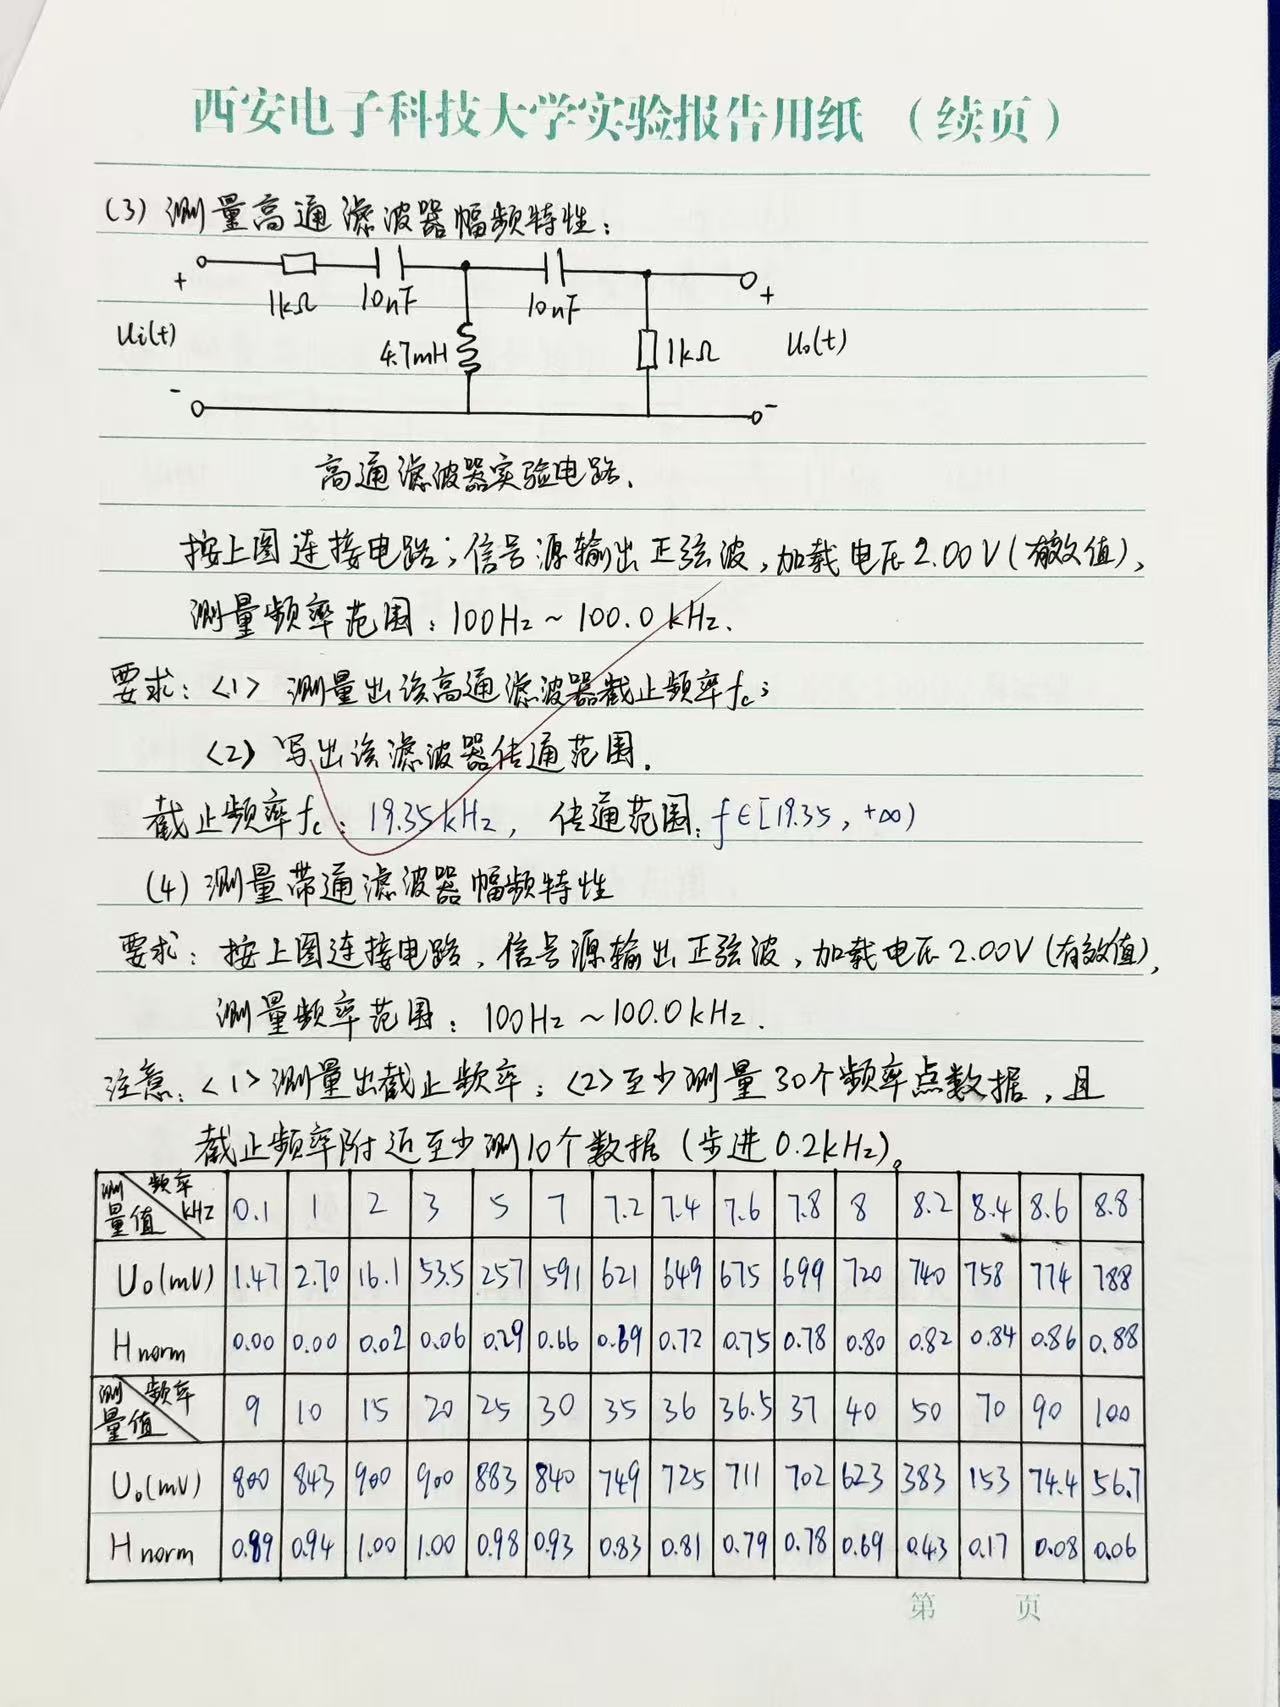 西安电子科技大学实验报告用纸 （续页）
(3) 测量高通滤波器幅频特性：
+ 1kΩ 10nF 10nF +
Ui(t) 4.7mH 1kΩ Uo(t)
- -
高通滤波器实验电路.
按上图连接电路；信号源输出正弦波，加载电压2.00V(有效值),
测量频率范围：100Hz~100.0kHz.
要求：<1> 测量出该高通滤波器截止频率fc；
<2> 写出该滤波器传通范围.
截止频率fc：19.35kHz, 传通范围：f∈[19.35, +∞)
(4) 测量带通滤波器幅频特性
要求：按上图连接电路，信号源输出正弦波，加载电压2.00V(有效值),
测量频率范围：100Hz~100.0kHz.
注意：<1>测量出截止频率；<2>至少测量30个频率点数据，且
截止频率附近至少测10个数据(步进0.2kHz)。
测量值 频率kHz 0.1 1 2 3 5 7 7.2 7.4 7.6 7.8 8 8.2 8.4 8.6 8.8
Uo(mV) 1.47 2.70 16.1 53.5 257 591 621 649 675 699 720 740 758 774 788
Hnorm 0.00 0.00 0.02 0.06 0.29 0.66 0.69 0.72 0.75 0.78 0.80 0.82 0.84 0.86 0.88
测量值 频率 9 10 15 20 25 30 35 36 36.5 37 40 50 70 90 100
Uo(mV) 800 843 900 900 883 840 749 725 711 702 623 383 153 74.4 56.7
Hnorm 0.89 0.94 1.00 1.00 0.98 0.93 0.83 0.81 0.79 0.78 0.69 0.43 0.17 0.08 0.06
第 页